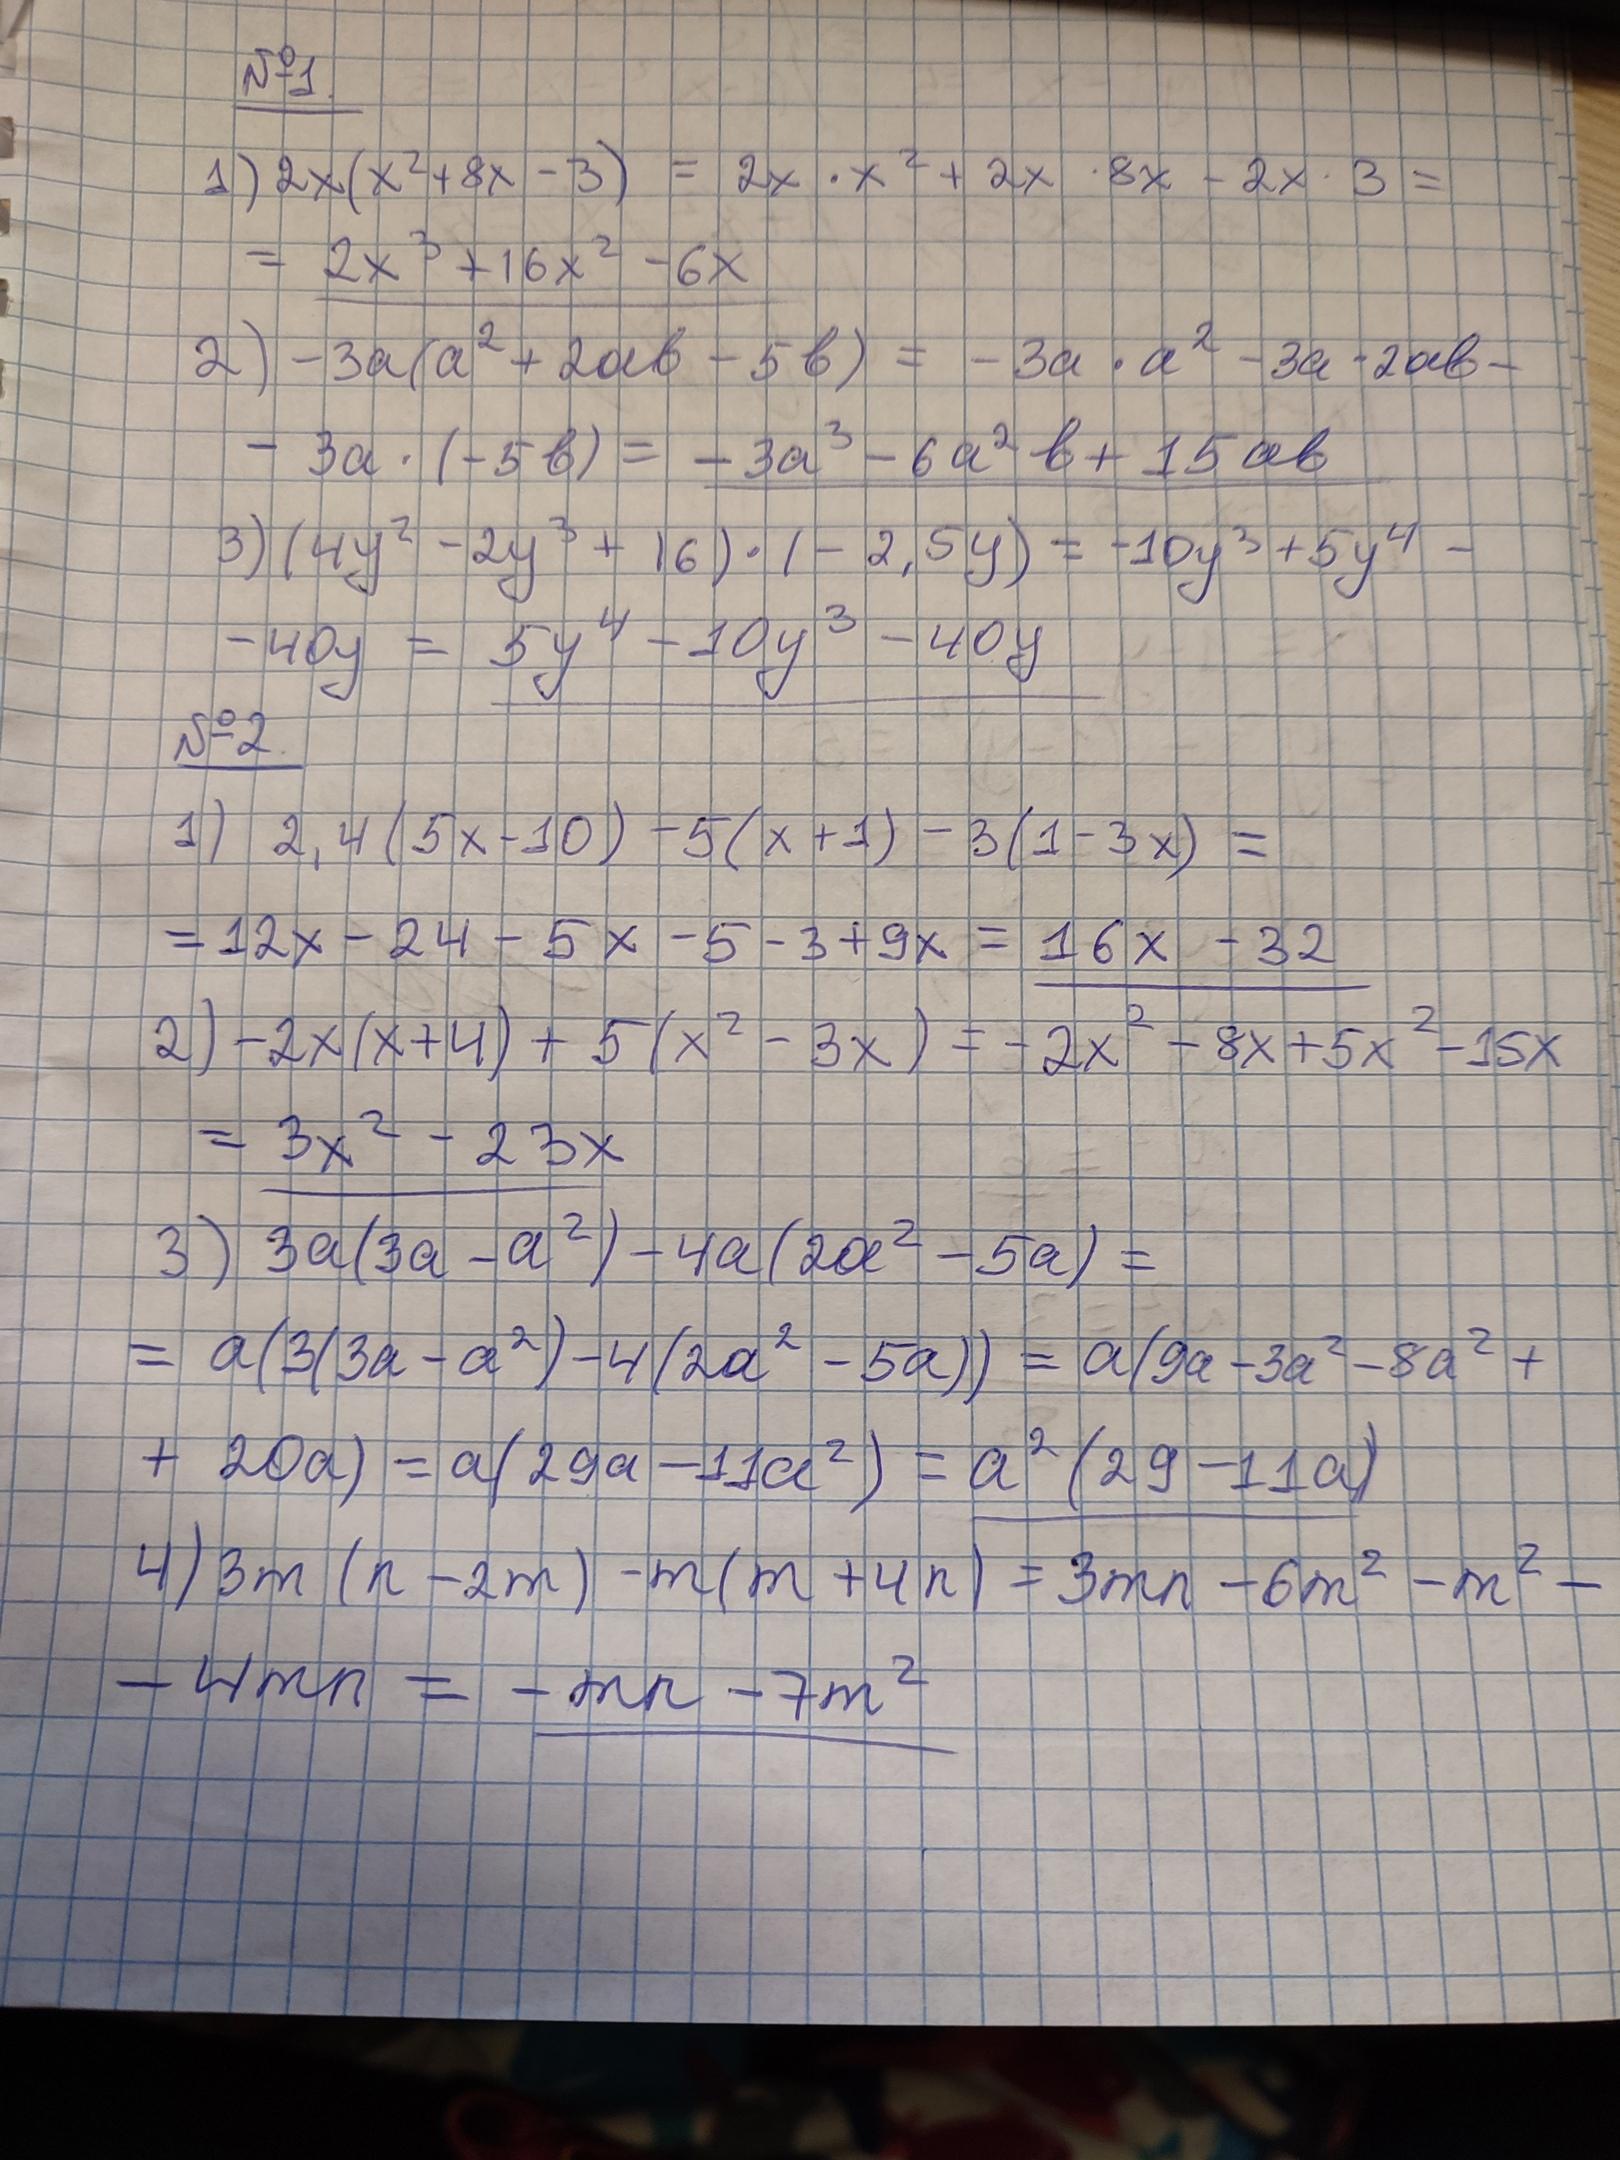 №1.
1) 2x(x²+8x-3) = 2x·x²+2x·8x-2x·3=
= 2x³+16x²-6x
2) -3a(a²+2ab-5b) = -3a·a²-3a·2ab-
-3a·(-5b)= -3a³-6a²b+15ab
3) (4y²-2y³+16)·(-2,5y)=-10y³+5y⁴-
-40y = 5y⁴-10y³-40y
№2.
1) 2,4(5x-10)-5(x+1)-3(1-3x)=
=12x-24-5x-5-3+9x=16x-32
2) -2x(x+4)+5(x²-3x)=-2x²-8x+5x²-15x
= 3x²-23x
3) 3a(3a-a²)-4a(2a²-5a)=
= a(3(3a-a²)-4(2a²-5a))=a(9a-3a²-8a²+
+20a)=a(29a-11a²)=a²(29-11a)
4) 3m(n-2m)-m(m+4n)=3mn-6m²-m²-
-4mn=-mn-7m²